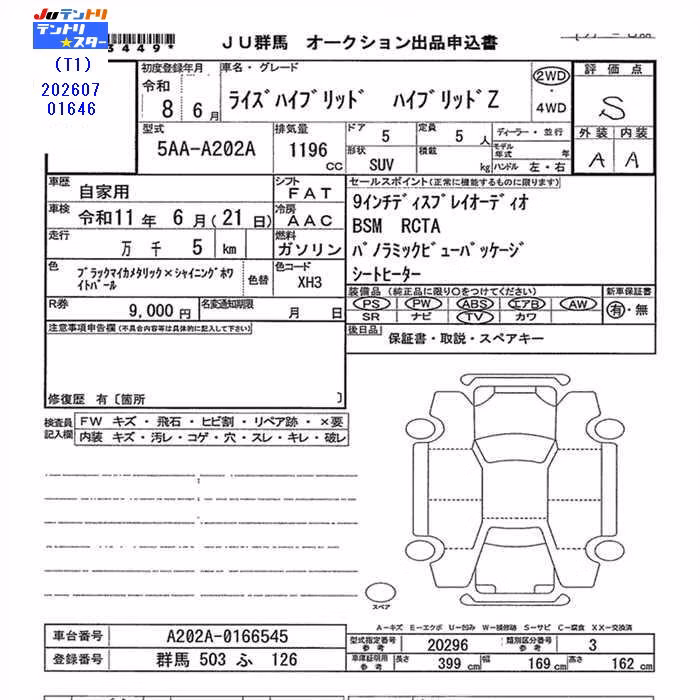 JUテントリ
テントリ
★スター
3449*
(T1)
202607
01646
JU群馬 オークション出品申込書
初度登録年月
令和
8 6月
車名・グレード
ライズハイブリッド ハイブリッドZ
2WD
・
4WD
評価点
S
外装 内装
A A
型式
5AA-A202A
排気量
1196
CC
ドア
5
定員
5 人
形状
SUV
積載
kg
ディーラー・並行
モデル年式 年
ハンドル 左・右
車歴
自家用
シフト
FAT
車検
令和11年 6月(21日)
冷房
AAC
走行
万 千 5 km
燃料
ガソリン
色
ブラックマイカメタリック×シャイニングホワイトパール
色替
色コード
XH3
R券
9,000円
名変通知期限
月 日
セールスポイント(正常に機能するものに限ります)
9インチディスプレイオーディオ
BSM RCTA
パノラミックビューパッケージ
シートヒーター
装備品 (純正品に限り○をつけてください)
PS PW ABS エアB AW
SR ナビ TV カワ
新車保証書
有・無
後日品
保証書・取説・スペアキー
注意事項申告欄(不具合内容等は具体的に記入して下さい)
修復歴 有〔箇所 〕
検査員記入欄
FW キズ・飛石・ヒビ割・リペア跡・×要
内装 キズ・汚レ・コゲ・穴・スレ・キレ・破レ
スペア
A−キズ E−エクボ U−凹み W−補修跡 S−サビ C−腐食 XX−交換済
車台番号
A202A-0166545
登録番号
群馬 503 ふ 126
型式指定番号
参考
20296
類別区分番号
参考
3
車庫証明用
参考
長さ
399 cm
幅
169 cm
高さ
162 cm